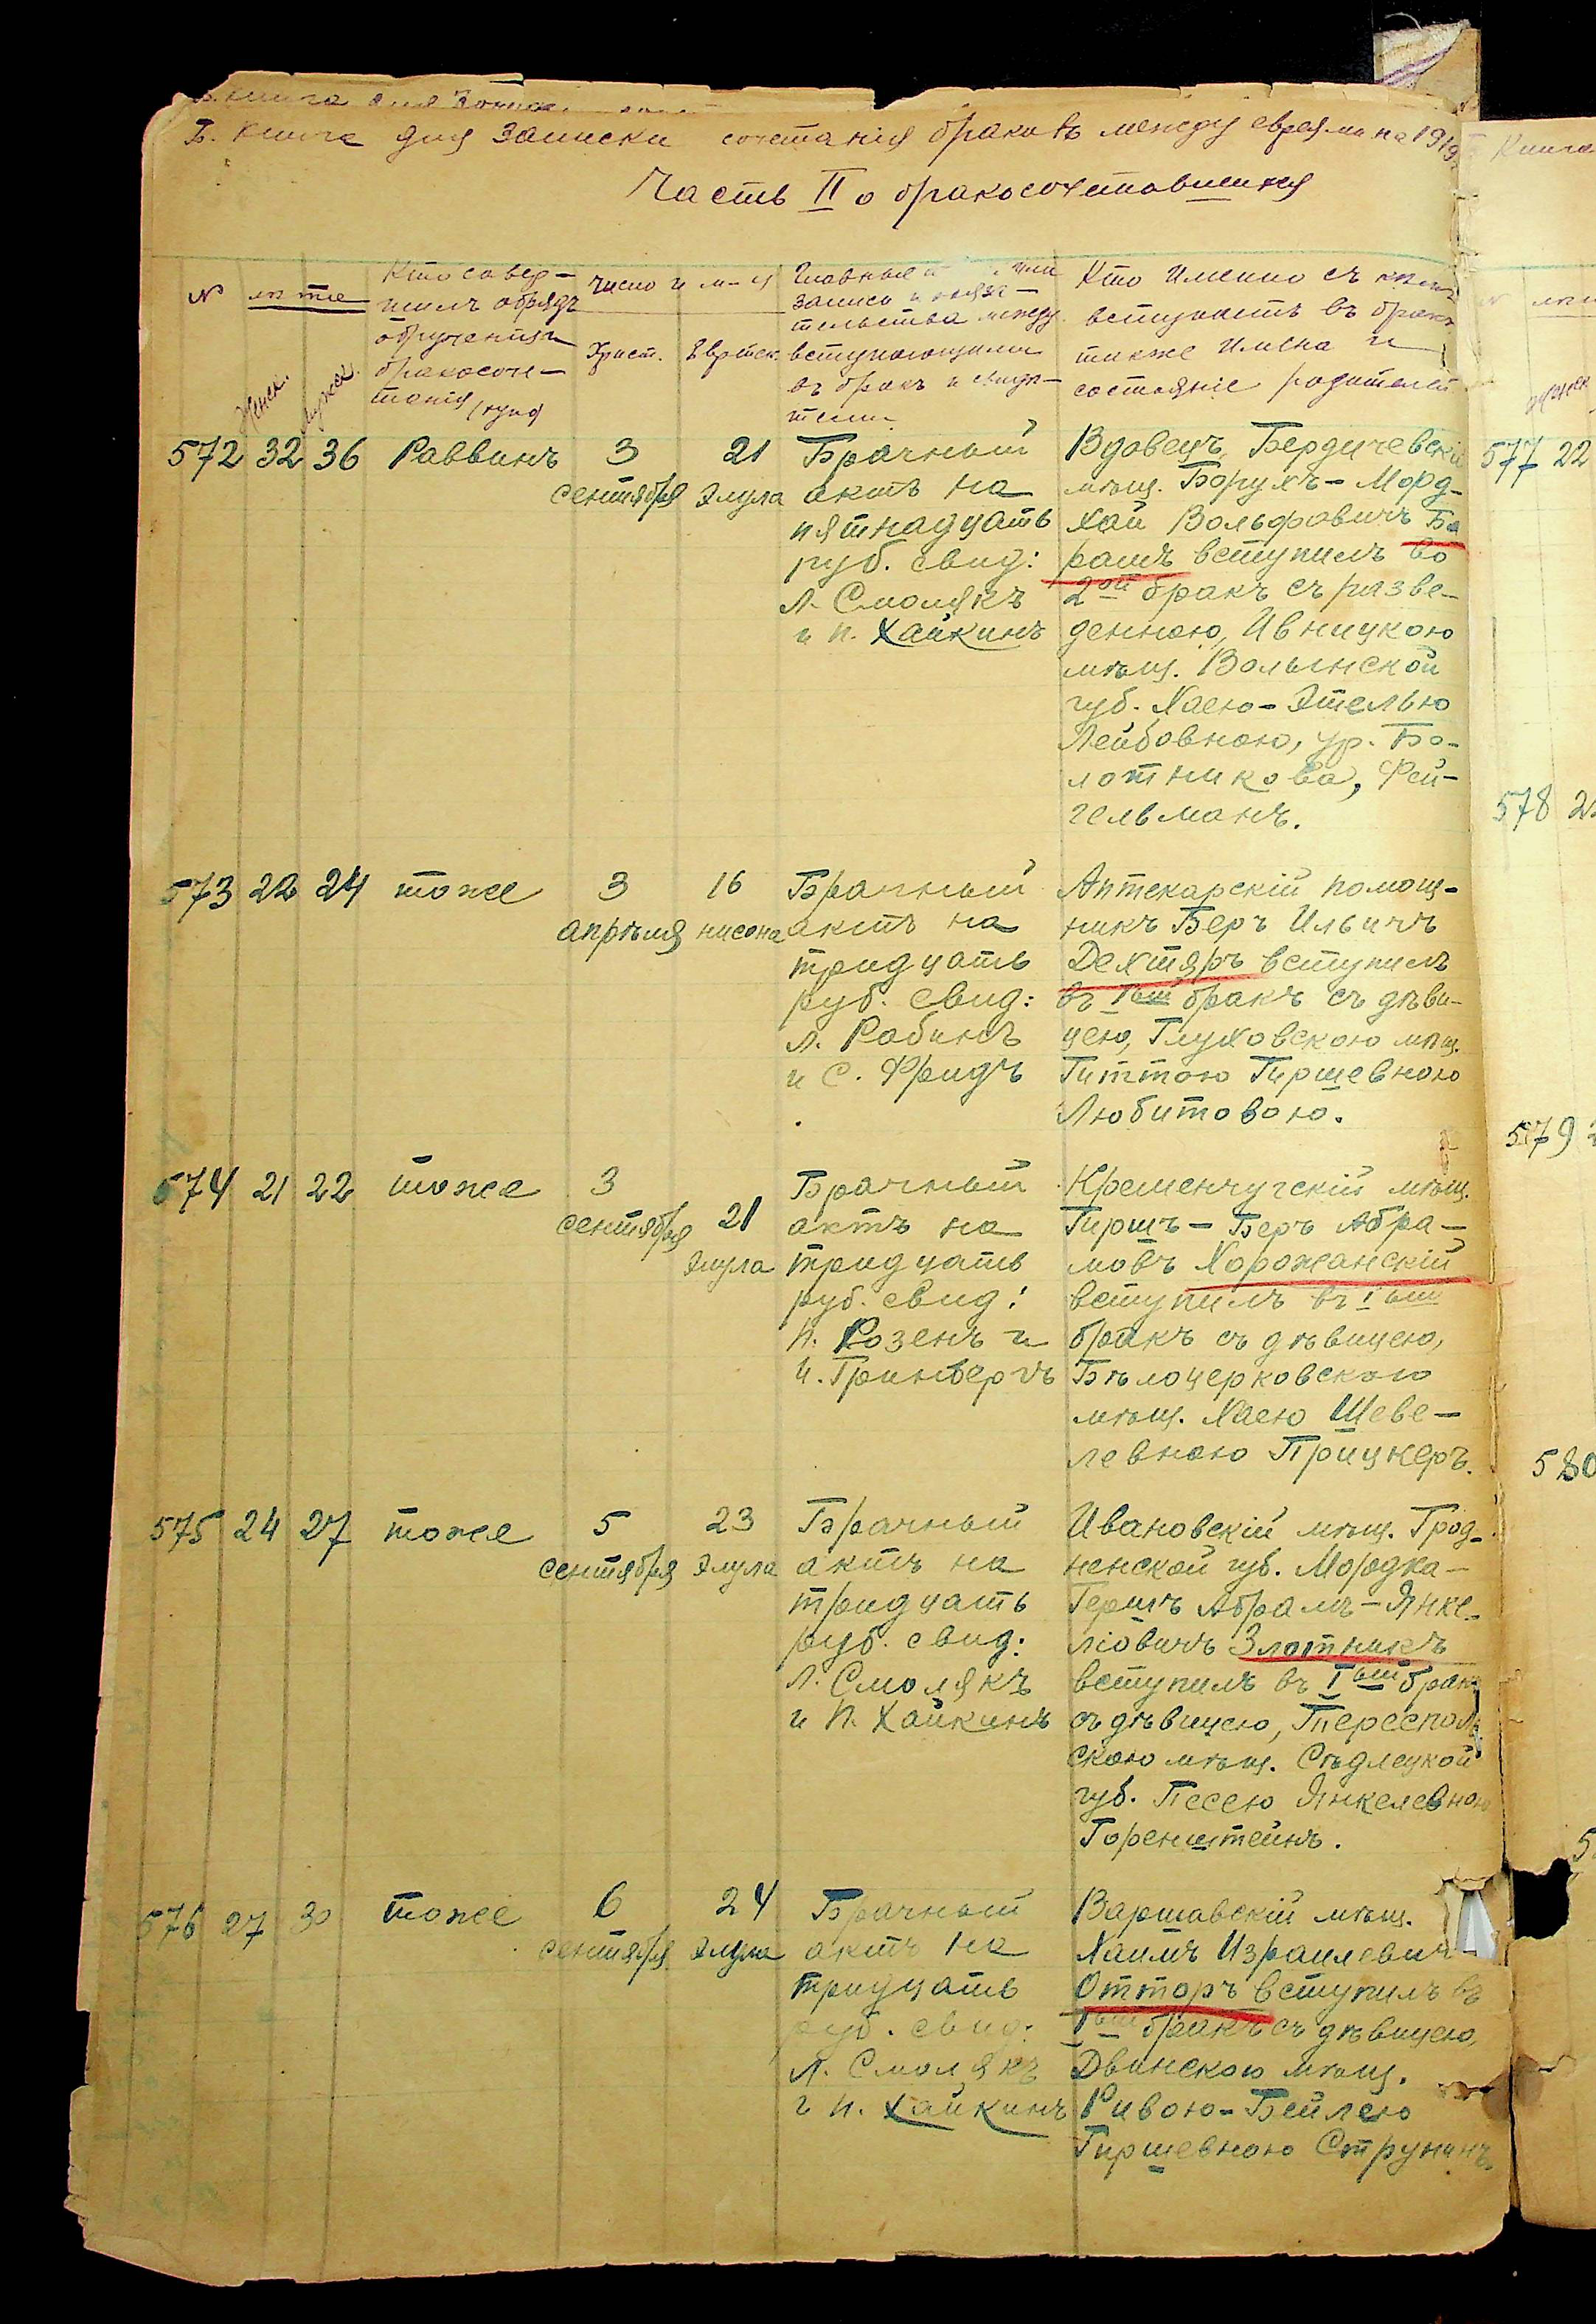 Б. Книга для Записки сочетанія браковъ между евреями на 1919
Часть II о бракосочетавшихся
№ лета
Женск. Мужск.
Кто совер-
шилъ обрядъ
обрученія и
бракосоче-
танія
Число и м-ц
Христ. Еврейск.
Главные или
записи и обяза-
тельства между
вступающими
въ бракъ и свидѣ-
тели
Кто Именно съ кѣмъ
вступаетъ въ бракъ
также Имена и
состояніе родителей
572 32 36 Раввинъ 3 сентября 21 Элула
Брачный
актъ на
пятнадцать
руб. свид:
Л. Смолякъ
и П. Хайкинъ
Вдовецъ, Бердичевскій
мѣщ. Борухъ-Морд-
хай Вольфовичъ Ба
рашъ вступилъ во
2ой бракъ съ разве-
денною, Ивницкою
мѣщ. Волынской
губ. Хаею-Этелью
Лейбовною, ур. Бо-
лотникова, Фей-
гельманъ.
573 22 24 тоже 3 апрѣля 16 нисона
Брачный
актъ на
тридцать
руб. свид:
Л. Рабинъ
и С. Фридъ
Аптекарскій помощ-
никъ Беръ Ильичъ
Дехтяръ вступилъ
въ 1ый бракъ съ дѣви-
цею, Глуховскою мѣщ.
Гиттою Гиршевною
Любитовою.
574 21 22 тоже 3 сентября 21 Элула
Брачный
актъ на
тридцать
руб. свид:
П. Розенъ и
И. Гринбергъ
Кременчугскій мѣщ.
Гиршъ-Беръ Абра-
мовъ Хорожанскій
вступилъ въ 1ый
бракъ съ дѣвицею,
Бѣлоцерковскою
мѣщ. Хаею Шеве-
левною Прицкеръ.
575 24 27 тоже 5 сентября 23 Элула
Брачный
актъ на
тридцать
руб. свид:
Л. Смолякъ
и П. Хайкинъ
Ивановскій мѣщ. Грод-
ненской губ. Мордха-
Гершъ Абрамъ-Янке-
ліовичъ Злотникъ
вступилъ въ Iый бракъ
съ дѣвицею, Тересполь
скою мѣщ. Сѣдлецкой
губ. Песею Янкелевною
Горенштейнъ.
576 27 30 тоже 6 сентября 24 Элула
Брачный
актъ на
тридцать
руб. свид:
Л. Смолякъ
и П. Хайкинъ
Варшавскій мѣщ.
Хаимъ Израилевич
Отторъ вступилъ въ
1ый бракъ съ дѣвицею,
Двинскою мѣщ.
Ривою-Бейлею
Гиршевною Струнинъ.
Книга
577 22
578 2
579
580
5